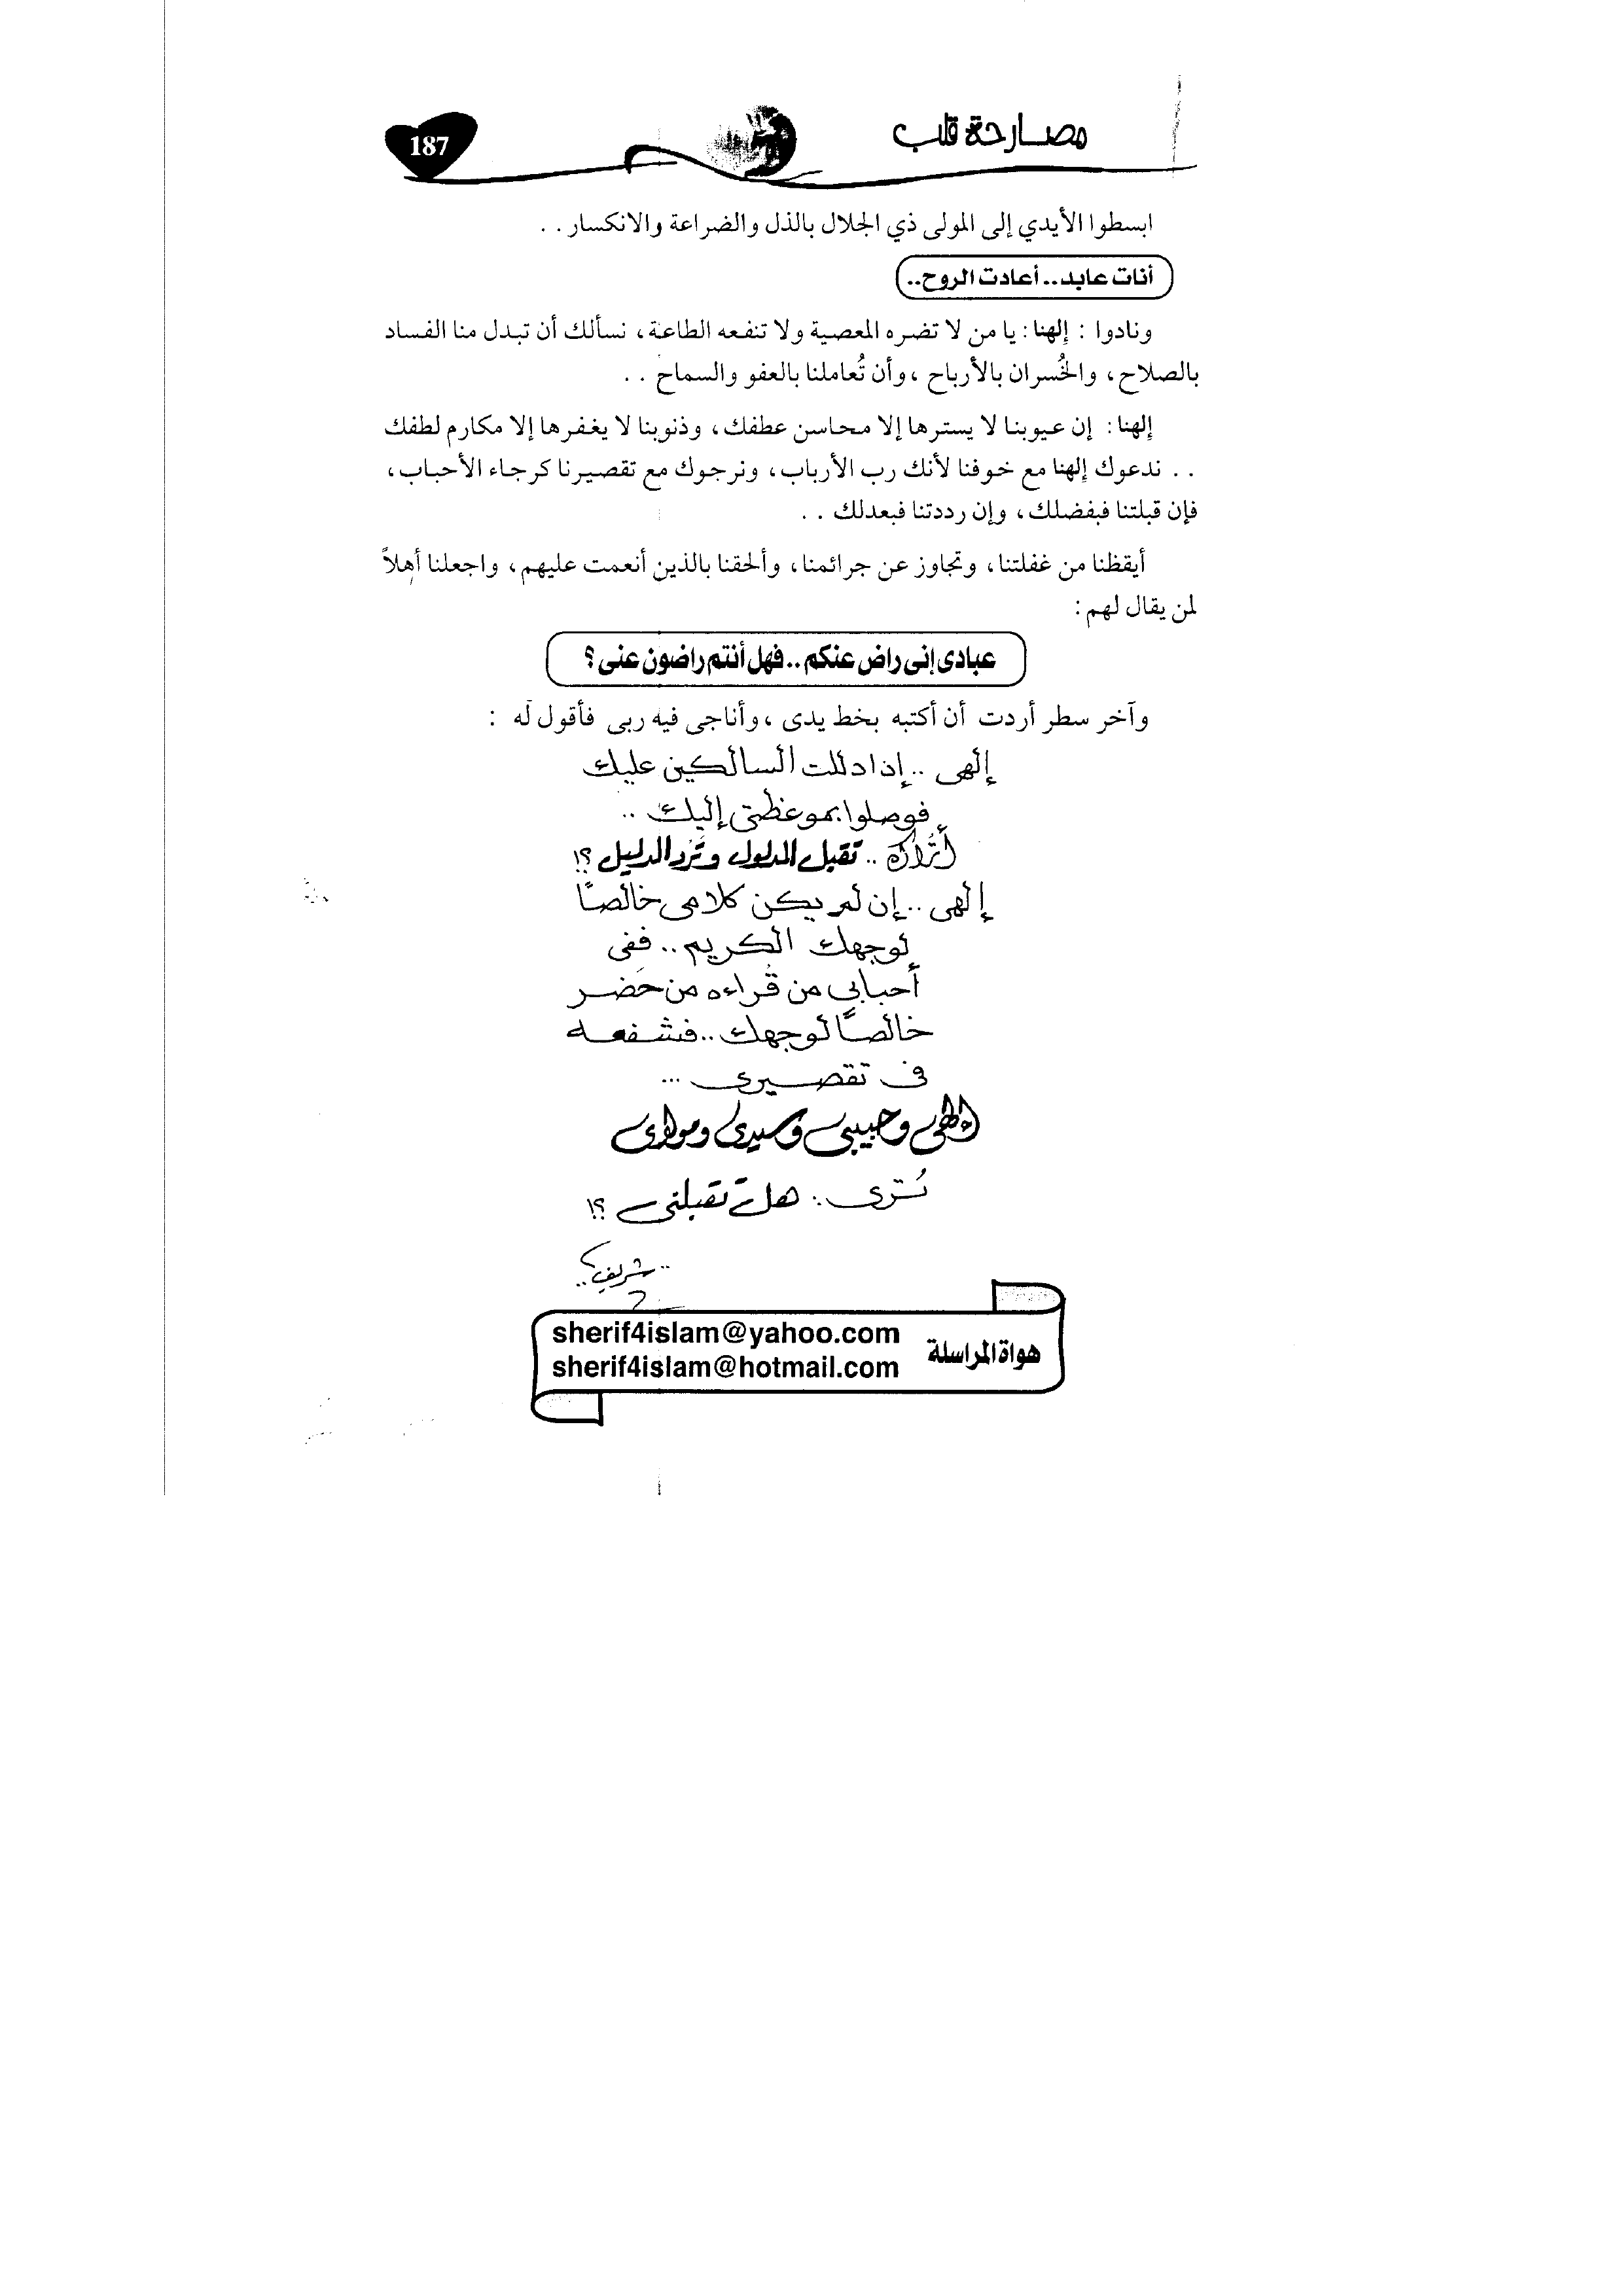 مصارحة قلب
187
ابسطوا الأيدي إلى المولى ذي الجلال بالذل والضراعة والانكسار . .
أنات عابد.. أعادت الروح..
ونادوا : إلهنا : يا من لا تضره المعصية ولا تنفعه الطاعة ، نسألك أن تبدل منا الفساد
بالصلاح ، والخُسران بالأرباح ، وأن تُعاملنا بالعفو والسماح . .
إلهنا : إن عيوبنا لا يسترها إلا محاسن عطفك ، وذنوبنا لا يغفرها إلا مكارم لطفك
. . ندعوك إلهنا مع خوفنا لأنك رب الأرباب ، ونرجوك مع تقصيرنا كرجاء الأحباب ،
فإن قبلتنا فبفضلك ، وإن رددتنا فبعدلك . .
أيقظنا من غفلتنا ، وتجاوز عن جرائمنا ، وألحقنا بالذين أنعمت عليهم ، واجعلنا أهلاً
لمن يقال لهم :
عبادى إنى راض عنكم .. فهل أنتم راضون عنى ؟
وآخر سطر أردت أن أكتبه بخط يدى ، وأناجى فيه ربى فأقول له :
إلهى .. إذا دللت السالكين عليك
فوصلوا بموعظتى إليك ..
أَتُراك .. تقبل المدلول وتَرُد الدليل ؟!
إلهى .. إن لم يكن كلامى خالصًا
لوجهك الكريم .. ففى
أحبابى من قُراءه من حَضر
خالصًا لوجهك .. فشفعه
فى تقصيرى ...
إلهى وحبيبى وسيدى ومولاى
تُرى .. هل تقبلنى ؟!
.. شريف ..
هواة المراسلة
sherif4islam@yahoo.com
sherif4islam@hotmail.com